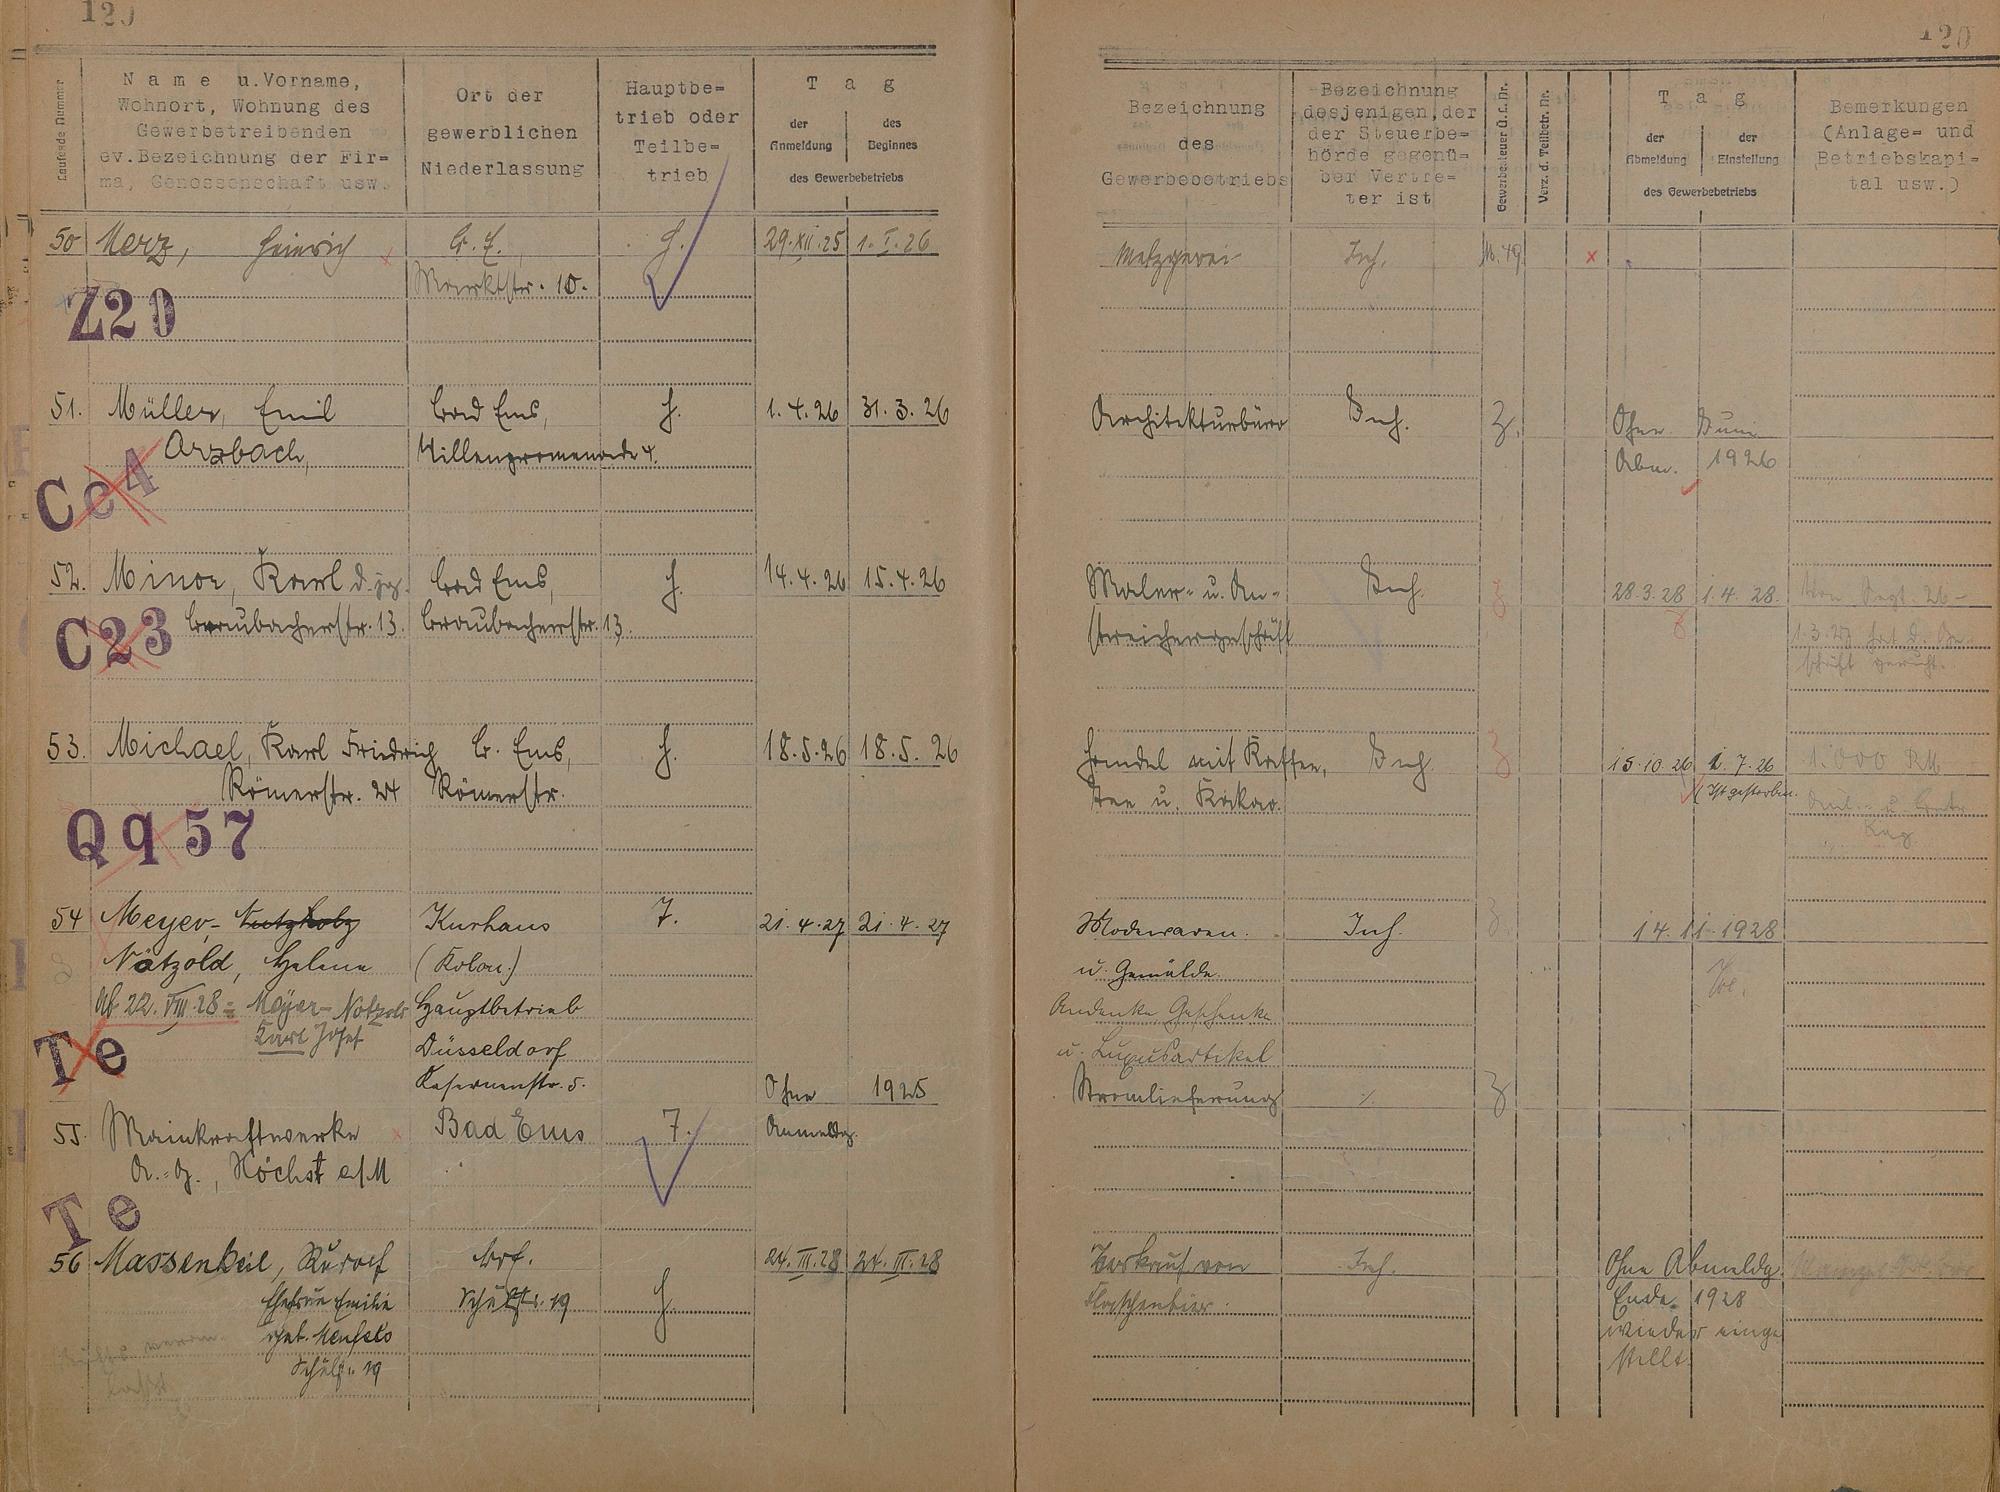 120
Laufende Nummer
Name u.Vorname,
Wohnort, Wohnung des
Gewerbetreibenden
ev.Bezeichnung der Fir=
ma, Genossenschaft usw.
Ort der
gewerblichen
Niederlassung
Hauptbe=
trieb oder
Teilbe=
trieb
Tag
der Anmeldung
des Beginnes
des Gewerbebetriebs
50 Merz, Heinrich x B. E. H. 29.XII.25 1.I.26
Marktstr. 10.
Z20
51. Müller, Emil Bad Ems, H. 1.4.26 31.3.26
Arzbach, Villenpromenade 4.
Cc4
52. Minor, Karl d. jg. Bad Ems, H. 14.4.26 15.4.26
Braubacherstr. 13. Braubacherstr. 13.
C23
53. Michael, Karl Friedrich B. Ems, H. 18.5.26 18.5.26
Römerstr. 24 Römerstr.
Qq57
54 Meyer- Nutzholz Kurhaus T. 21.4.27 21.4.27
Nötzold, Helene (Kolon.)
Ab 22.VIII.28 = Meyer- Hauptbetrieb
Karl Josef Düsseldorf
Te
Kasernenstr. 5.
Ohne 1925
55. Mainkraftwerke x Bad Ems T. Anmeldg.
A.=G., Höchst a/M
Te
56 Massenkeil, Rudolf 24.III.28 24.III.28
Ehefrau Emilie Schulstr. 19 H.
geb.
Schulstr. 19
120
Bezeichnung
des
Gewerbebetriebs
Bezeichnung
desjenigen,der
der Steuerbe=
hörde gegenü=
ber Vertre=
ter ist
Gewerbesteuer A.L.Nr.
Verz. d. Teilbetr. Nr.
Tag
der Abmeldung
der Einstellung
des Gewerbebetriebs
Bemerkungen
(Anlage= und
Betriebskapi=
tal usw.)
Metzgerei Inh. M.49 x
Architekturbüro Inh. Z. Ohne Juni
Abm. 1926
Maler- u. An- Inh. 28.3.28 1.4.28.
streichergeschäft
Handel mit Kaffee, Inh. 15.10.26 1.7.26 1.000 RM
Tee u. Kakao. (Ist gestorben.
Modewaren. Inh. 14.11.1928
u. Gemälde.
Andenken, Geschenke
u. Luxusartikel
Stromlieferung ./. Z
Verkauf von Inh. Ohne Abmeldg.
Flaschenbier. Ende 1928
wieder einge
stellt.